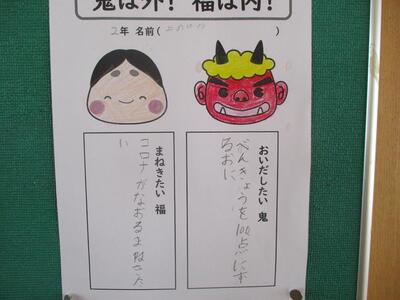 鬼は外！福は内！
2年 名前(
)
おいだしたい 鬼
べんきょうを100点にす
るおに
まねきたい 福
コロナがなおるまねきた
い